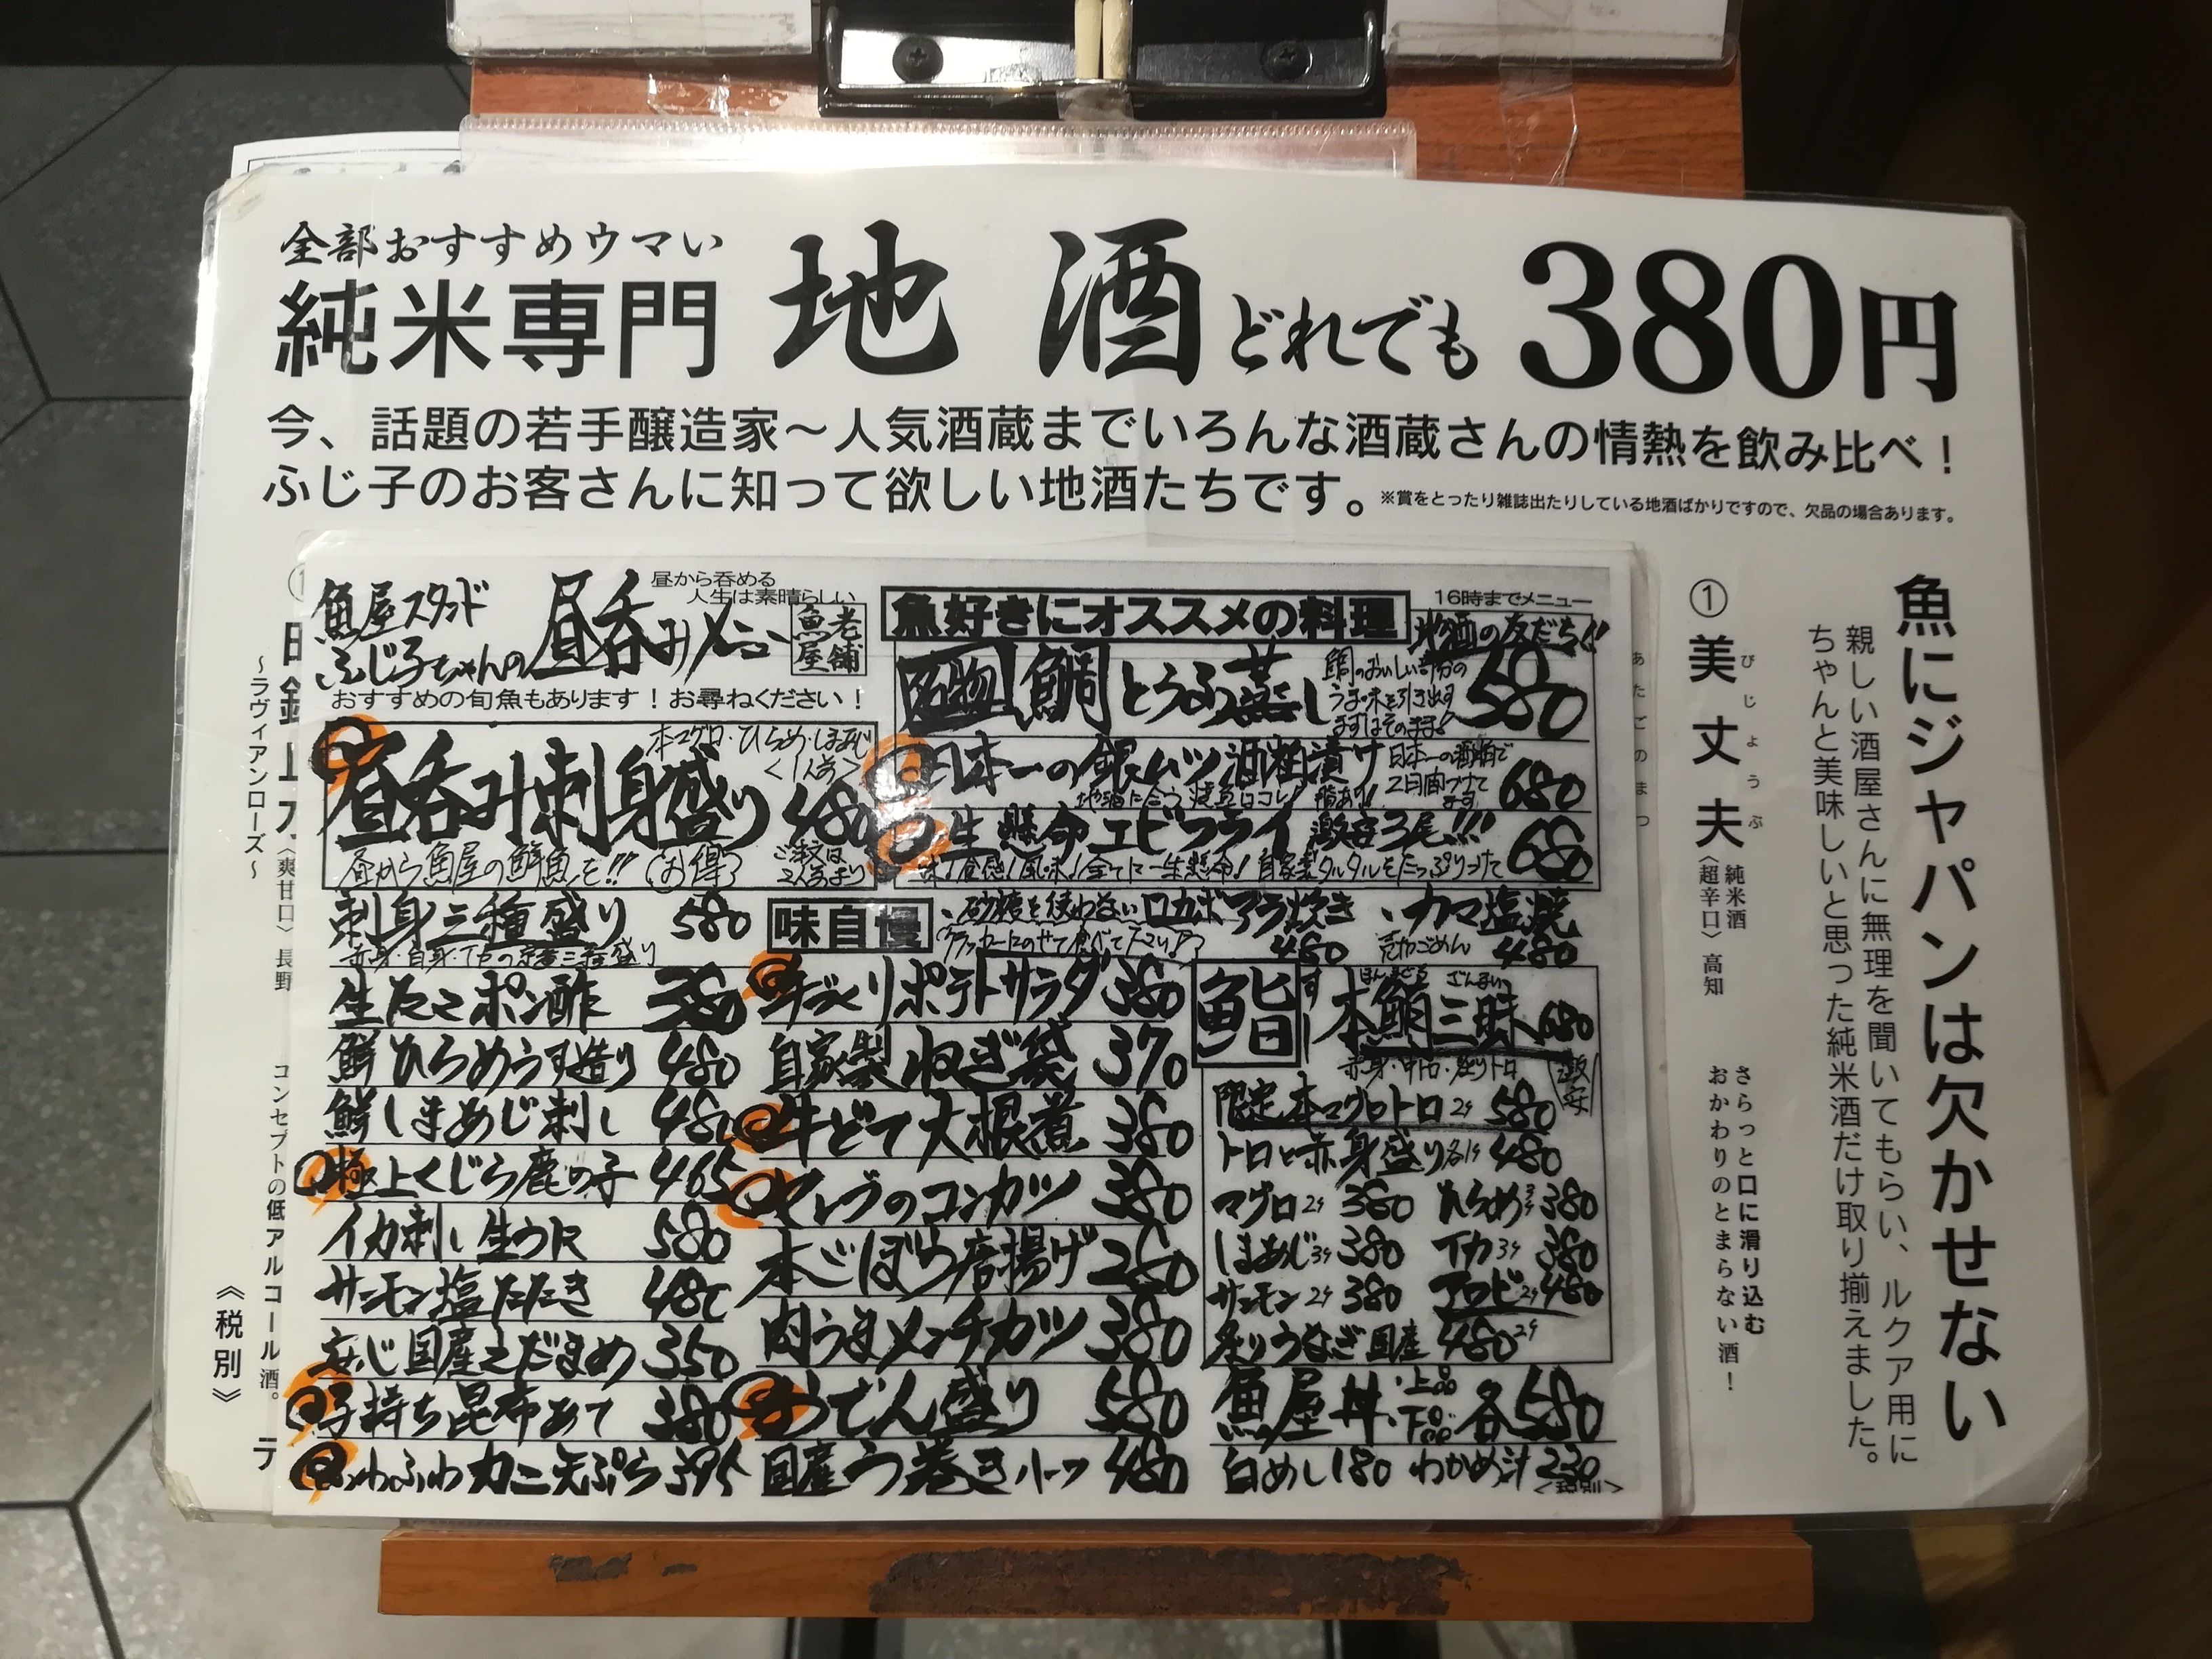 全部おすすめウマい
純米専門 地酒 どれでも 380円
今、話題の若手醸造家～人気酒蔵までいろんな酒蔵さんの情熱を飲み比べ！
ふじ子のお客さんに知って欲しい地酒たちです。※賞をとったり雑誌出たりしている地酒ばかりですので、欠品の場合あります。
魚にジャパンは欠かせない
親しい酒屋さんに無理を聞いてもらい、ルクア用に
ちゃんと美味しいと思った純米酒だけ取り揃えました。
① 美丈夫
びじょうふ
純米酒
〈超辛口〉 高知
さらっと口に滑り込む
おかわりのとまらない酒！
あたごのまつ
魚屋スタンド
ふじ子ちゃんの
昼呑みメニュー
昼から呑める
人生は素晴らしい
老舗
魚屋
おすすめの旬魚もあります！お尋ねください！
本マグロ・ひらめ・しまあじ
<1人前>
昼呑み刺身盛り 480
昼から魚屋の鮮魚を!! お得
ご注文は
2人前より
刺身三種盛り 580
生たこポン酢 380
鮮ひらめうす造り 480
鮮しまあじ刺し 480
極上くじら鹿の子 465
イカ刺し生うに 580
サーモン塩たたき 480
国産えだまめ 350
子持ち昆布あて 380
ふわふわカニ天ぷら 395
魚好きにオススメの料理
16時までメニュー
地酒の友だち!!
名物 鯛とうふ蒸し 580
鯛のおいしい部分の
うま味を引き出す
まずはそのまま
日本一の銀ムツ酒粕漬け 680
日本一の酒粕で
2日間つけて
ます
一生懸命エビフライ 激安3尾!!! 680
味！食感！風味！全てに一生懸命！自家製タルタルをたっぷりつけて
味自慢
砂糖を使わないロカボアラ炊き 480
カマ塩焼 480
売切ごめん
手づくりポテトサラダ 380
自家製ねぎ袋 370
牛どて大根煮 380
セレブのコンカツ 380
本ごぼう唐揚げ 260
肉うまメンチカツ 380
おでん盛り 580
国産う巻きハーフ 480
鮨
本鮪三昧 680
赤身・中トロ・炙りトロ
限定本マグロトロ 2ケ 580
トロと赤身盛り 各1ケ 480
マグロ 2ケ 380 ひらめ 380
しまあじ 3ケ 380 イカ 3ケ 380
サーモン 2ケ 380 アワビ 2ケ 480
炙りうなぎ国産 480 2ケ
魚屋丼 ・上品 ・下品 各580
白めし 180 わかめ汁 230
<税別>
～ラヴィアンローズ～
〈爽甘口〉 長野
コンセプトの低アルコール酒。
《税別》